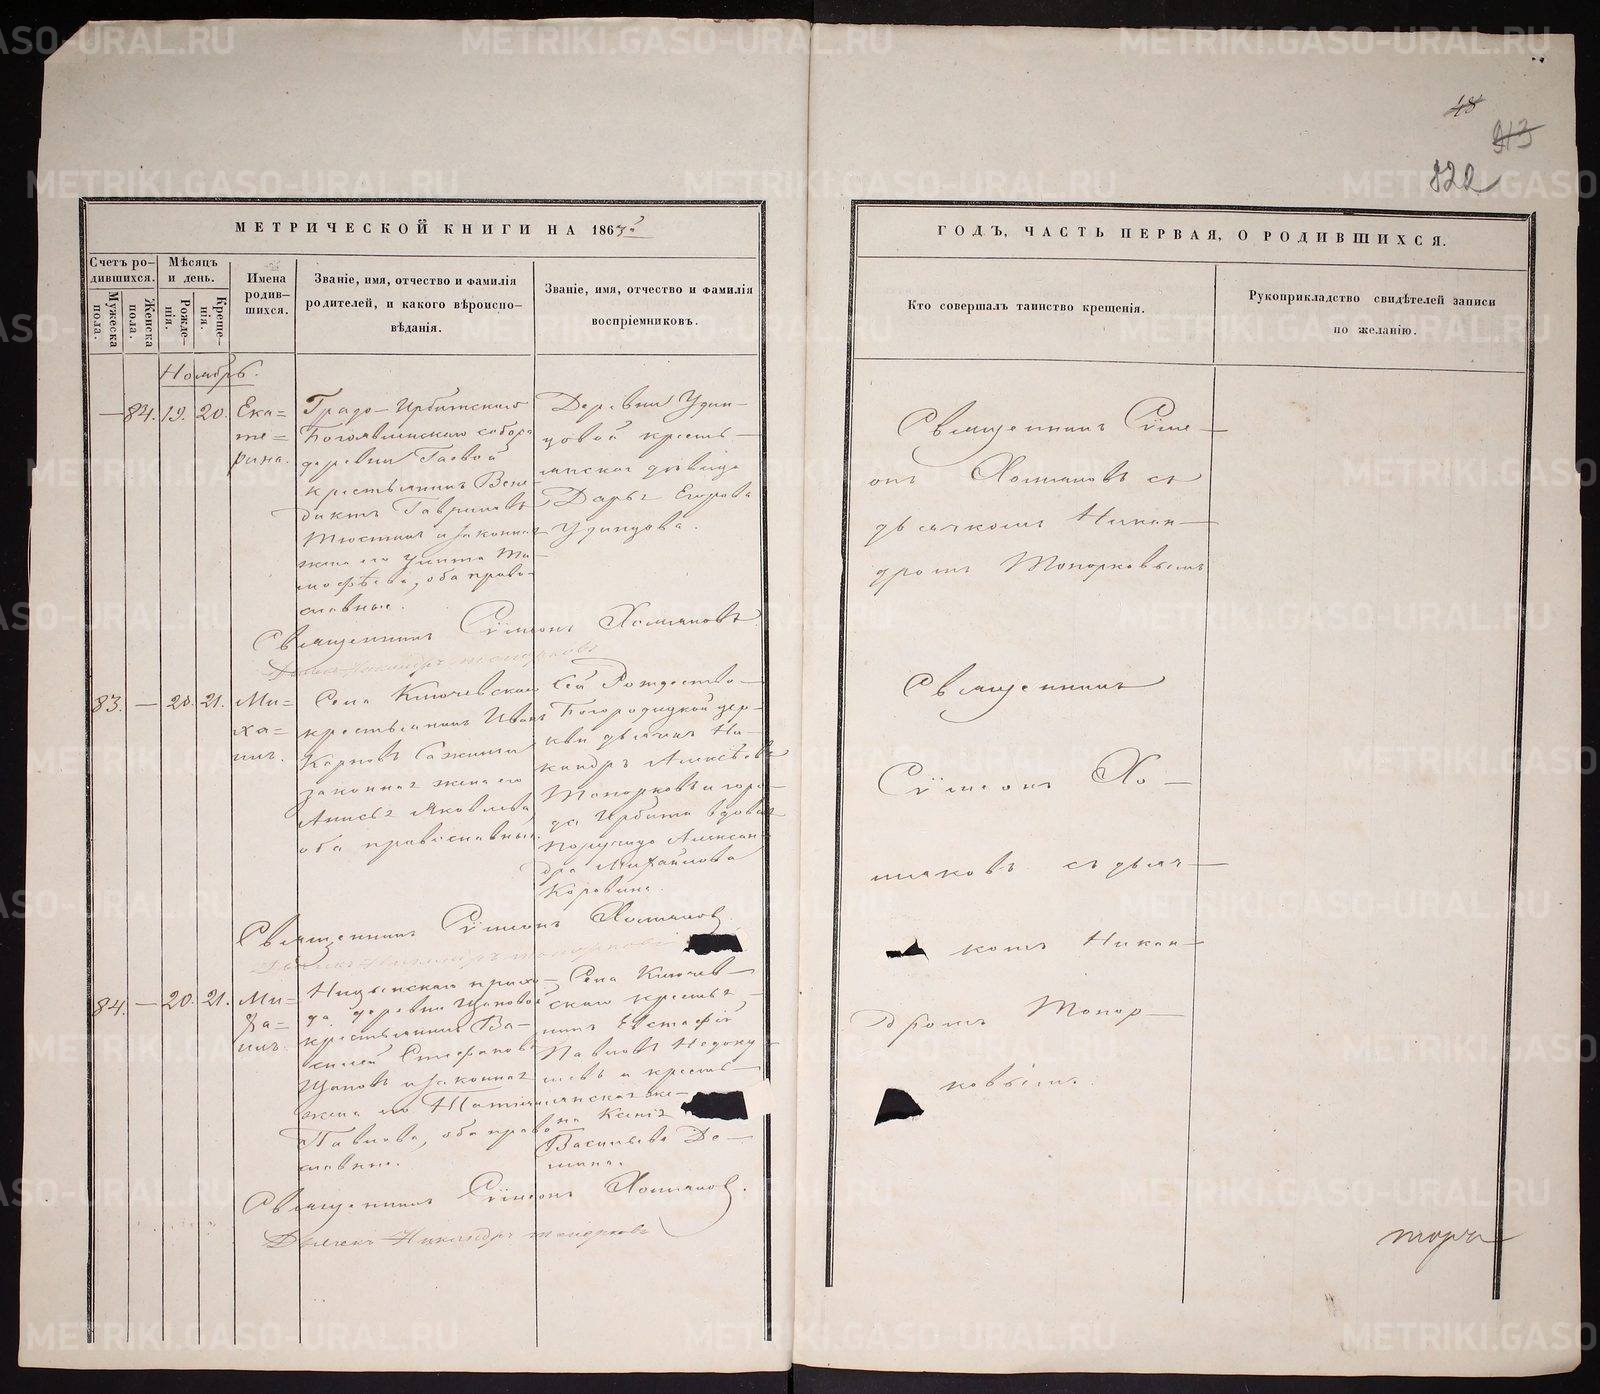 48
313
322
МЕТРИЧЕСКОЙ КНИГИ НА 186
ГОДЪ, ЧАСТЬ ПЕРВАЯ, О РОДИВШИХСЯ.
Счетъ ро-
дившихся.
Мужеска
пола.
Женска
пола.
Мѣсяцъ
и день.
Рожде-
нія.
Креще-
нія.
Имена
родив-
шихся.
Званіе, имя, отчество и фамилія
родителей, и какого вѣроиспо-
вѣданія.
Званіе, имя, отчество и фамилія
воспріемниковъ.
Кто совершалъ таинство крещенія.
Рукоприкладство свидѣтелей записи
по желанію.
Ноябрь.
— 84. 19. 20.
Ека=
те=
рина.
Градо-Ирбитскаго
Богоявленскаго собора
деревни Гаевой
крестьянинъ Вене-
диктъ Гавриловъ
и законная
жена его Ти-
мофѣева, оба право-
славные.
Деревни Удин-
цовой кресть-
янская дѣвица
Дарья Егорова
Удинцова.
Священникъ Сѵме-
онъ Хомяковъ съ
дьячкомъ Никан-
дромъ Топорковымъ
Священникъ Сѵмеонъ Хомяковъ.
Дьячекъ Никандръ Топорковъ
83. — 20. 21.
Ми=
ха=
илъ.
Села Ключевскаго
крестьянинъ Иванъ
Карповъ
законная жена его
Анисья Яковлева
оба православные.
Сей Рождество-
Богородицкой цер-
кви дьячекъ Ни-
кандръ Алексѣевъ
Топорковъ и горо-
да Ирбити вдова
поручица Алексан-
дра Михайлова
Коровина.
Священникъ
Сѵмеонъ Хо-
мяковъ съ дьяч-
комъ Никан-
дромъ Топор-
ковымъ.
Священникъ Сѵмеонъ Хомяковъ.
Дьячекъ Никандръ Топорковъ
84. — 20. 21.
Ми=
ха=
илъ.
Ницынскаго прихо-
да деревни Щаповой
крестьянинъ Ва-
силій Стефановъ
Щаповъ и законная
жена его
Павлова, оба право-
славные.
Села Ключев-
скаго крестья-
нинъ Евстафій
Павловъ
и кресть-
янская же-
на Ксенія
Васильева
Священникъ Сѵмеонъ Хомяковъ.
Дьячекъ Никандръ Топорковъ